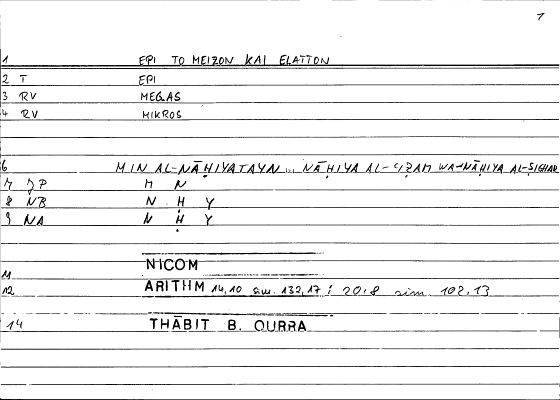 1
1 EPI TO MEIZON KAI ELATTON
2 T EPI
3 RV MEGAS
4 RV MIKROS
6 MIN AL-NĀḤIYATAYN ... NĀḤIYA AL-ʿIẒAM WA-NĀḤIYA AL-ṢIGHAR
7 JP M N
8 NB N Ḥ Y
9 NA N Ḥ Y
11 NICOM
12 ARITHM 14,10 sim. 132,17 ; 20.8 sim. 102.13
14 THĀBIT B. QURRA